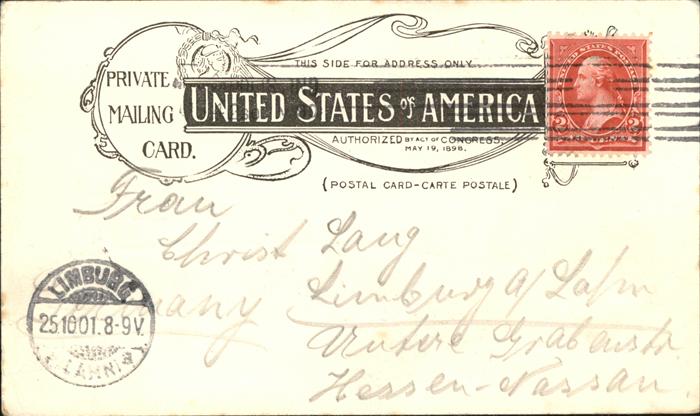 THIS SIDE FOR ADDRESS ONLY.
PRIVATE
MAILING
CARD.
UNITED STATES OF AMERICA
AUTHORIZED BY ACT OF CONGRESS,
MAY 19, 1898.
(POSTAL CARD-CARTE POSTALE)
UNITED STATES POSTAGE
2 2
TWO CENTS
Frau
Christ Lang
Germany Limburg a/ Lahn
Untere Grabenstr
Hessen-Nassau
LIMBURG
25.10.01.8-9V.
(LAHN)